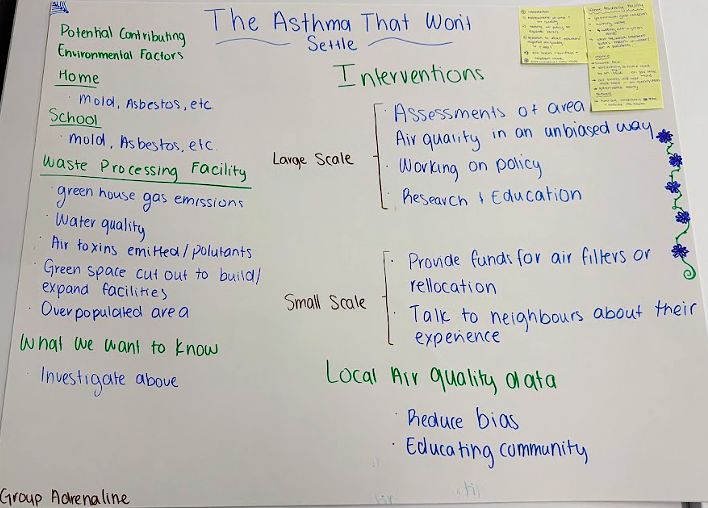 The Asthma That Won't
Settle
Potential Contributing
Environmental Factors
Home
· Mold, Asbestos, etc
School
· mold, Asbestos, etc.
Waste Processing Facility
· green house gas emissions
· Water quality
· Air toxins emitted/polutants
· Green space cut out to build/
expand facilities
· Overpopulated area
What we want to know
· Investigate above
Interventions
Large Scale
· Assessments of area
Air quality in an unbiased way
· Working on policy
· Research + Education
Small Scale
· Provide funds for air filters or
rellocation
· Talk to neighbours about their
experience
Local Air quality data
· Reduce bias
· Educating community
Group Adrenaline